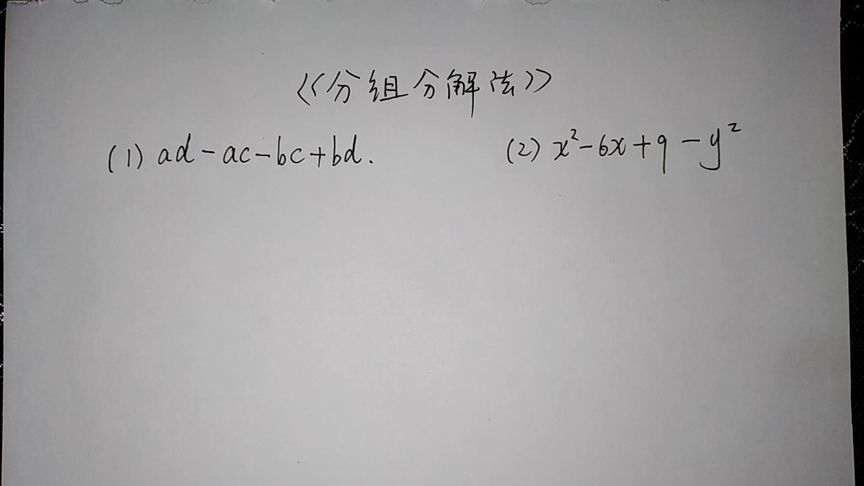 《分组分解法》
(1) ad-ac-bc+bd.
(2) x²-6x+9-y²